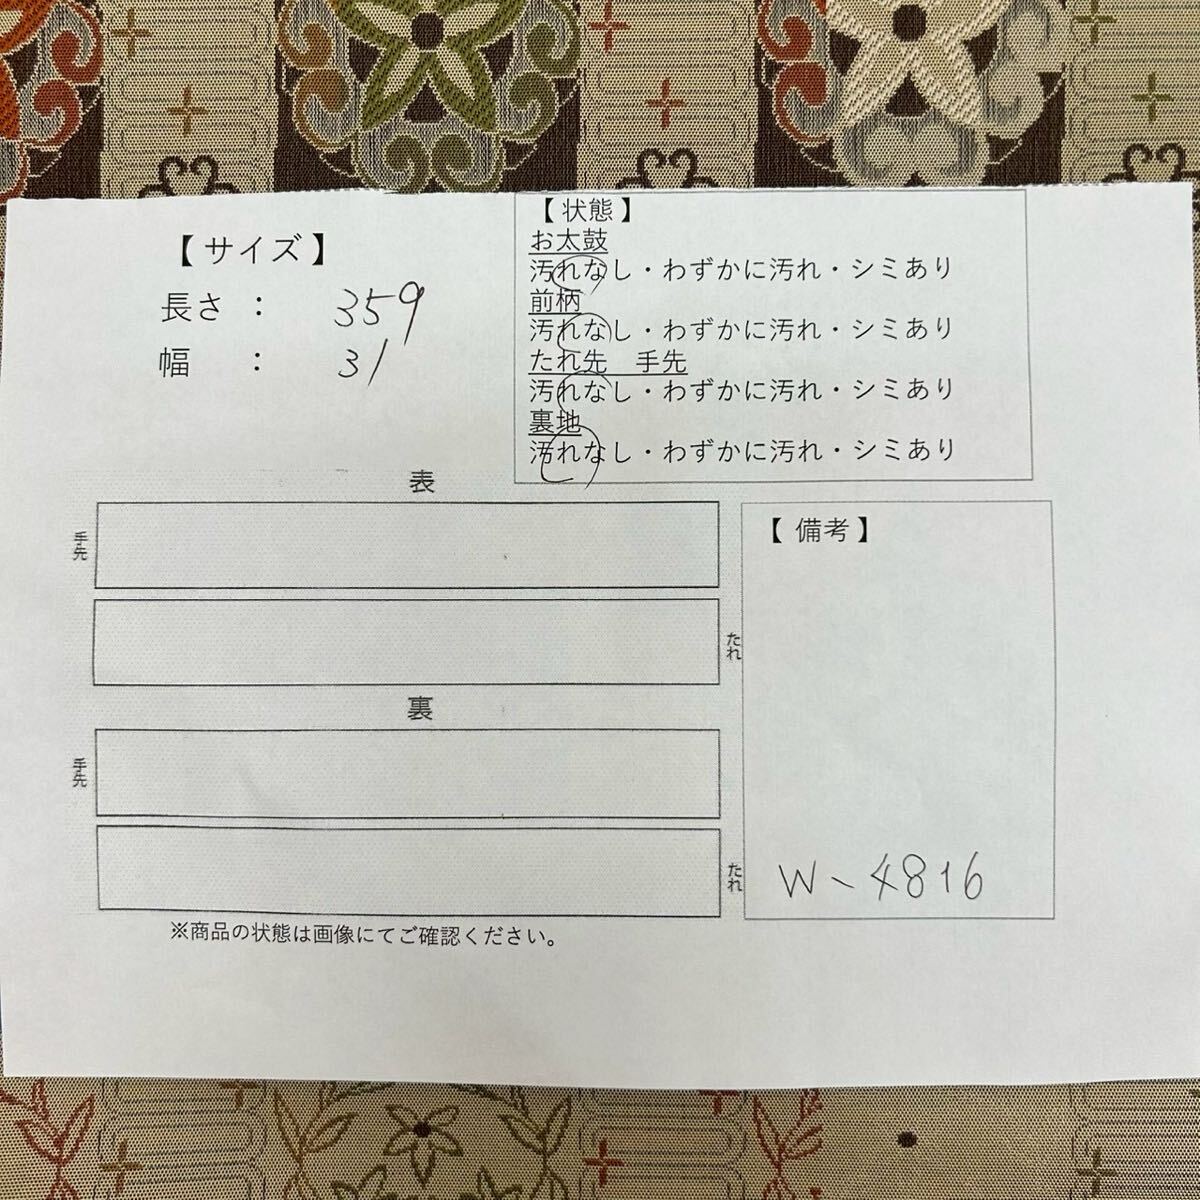 【 サイズ 】
長さ ： 359
幅 ： 31
【 状態 】
お太鼓
汚れなし・わずかに汚れ・シミあり
前柄
汚れなし・わずかに汚れ・シミあり
たれ先　手先
汚れなし・わずかに汚れ・シミあり
裏地
汚れなし・わずかに汚れ・シミあり
表
手先
たれ
裏
手先
たれ
※商品の状態は画像にてご確認ください。
【 備考 】
W-4816